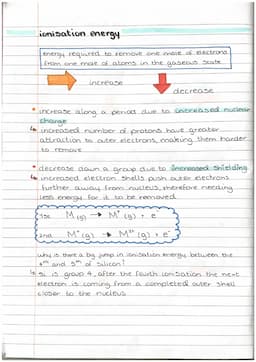 ionisation energy
energy required to remove one mole of electrons
from one mole of atoms in the gaseous state
increase
decrease
• increase along a period due to increased nuclear
charge
↳ increased number of protons have greater
attraction to outer electrons, making them harder
to remove
• decrease down a group due to increased shielding
↳ increased electron shells push outer electrons
further away from nucleus, therefore needing
less energy for it to be removed
1st: M(g) → M⁺(g) + e⁻
2nd: M⁺(g) → M²⁺(g) + e⁻
why is there a big jump in ionisation energy between the
4th and 5th of silicon?
↳ Si is group 4, after the fourth ionisation the next
electron is coming from a completed outer shell
closer to the nucleus